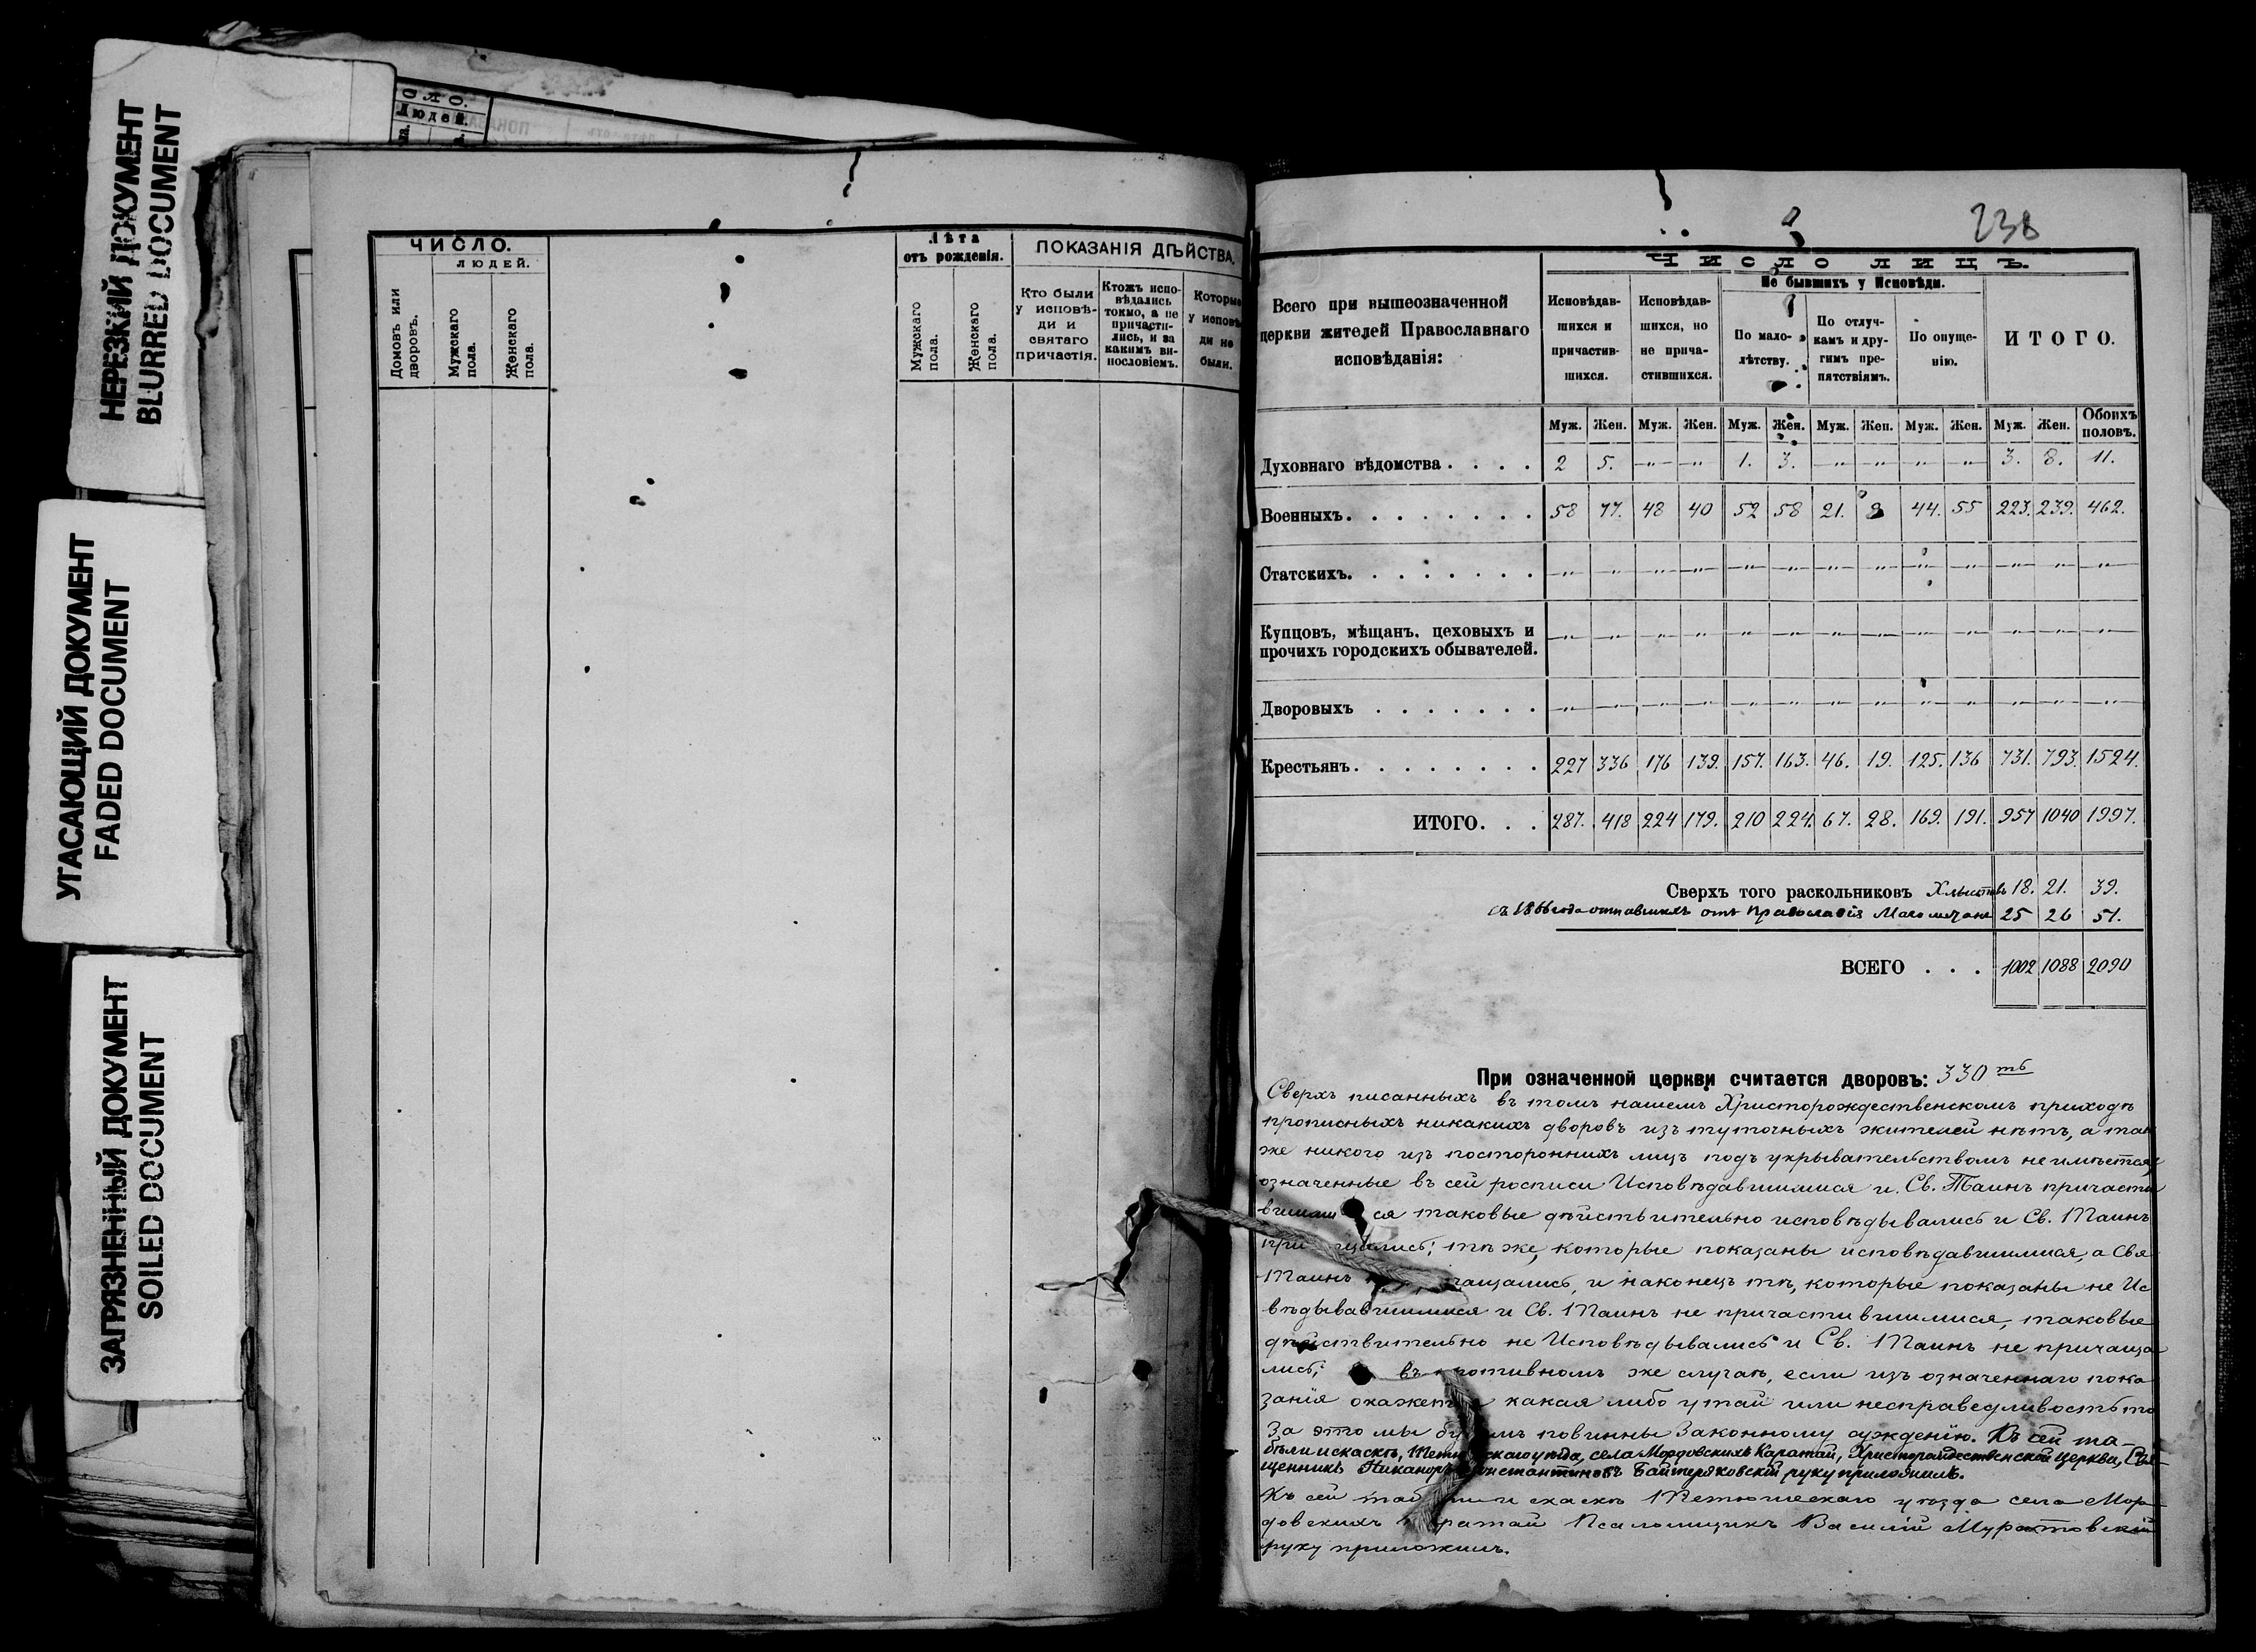 НЕРЕЗКИЙ ДОКУМЕНТ
BLURRED DOCUMENT
УГАСАЮЩИЙ ДОКУМЕНТ
FADED DOCUMENT
ЗАГРЯЗНЕННЫЙ ДОКУМЕНТ
SOILED DOCUMENT
Людей.
ЧИСЛО.
ЛЮДЕЙ.
Домовъ или дворовъ.
Мужскаго пола.
Женскаго пола.
Лѣта
отъ рожденія.
Мужскаго пола.
Женскаго пола.
ПОКАЗАНІЯ ДѢЙСТВА.
Кто были
у исповѣ-
ди и
святаго
причастія.
Ктожъ испо-
вѣдались
токмо, а не
причасти-
лись, и за
какимъ ви-
нословіемъ.
Которые
у исповѣ
ди не
были.
238
Всего при вышеозначенной
церкви жителей Православнаго
исповѣданія:
Число лицъ.
Исповѣдав-
шихся и
причастив-
шихся.
Исповѣдав-
шихся, но
не прича-
стившихся.
Не бывшихъ у Исповѣди.
По мало-
лѣтству.
По отлуч-
камъ и дру-
гимъ пре-
пятствіямъ.
По опуще-
нію.
ИТОГО.
Муж. Жен. Муж. Жен. Муж. Жен. Муж. Жен. Муж. Жен. Муж. Жен. Обоихъ половъ.
Духовнаго вѣдомства . . . . 2 5. —"— —"— 1. 3. —"— —"— —"— —"— 3. 8. 11.
Военныхъ. . . . . . . . . 58 77. 48 40 52 58 21. 9 44. 55 223. 239. 462.
Статскихъ. . . . . . . . —"— —"— —"— —"— —"— —"— —"— —"— —"— —"— —"— —"— —"—
Купцовъ, мѣщанъ, цеховыхъ и
прочихъ городскихъ обывателей. —"— —"— —"— —"— —"— —"— —"— —"— —"— —"— —"— —"— —"—
Дворовыхъ . . . . . . . —"— —"— —"— —"— —"— —"— —"— —"— —"— —"— —"— —"— —"—
Крестьянъ. . . . . . . . . 227 336 176 139. 157. 163. 46. 19. 125. 136 731. 793. 1524.
ИТОГО. . . 287. 418 224 179. 210 224. 67. 28. 169. 191. 957 1040 1997.
Сверхъ того раскольниковъ Хлыстовъ 18. 21. 39.
съ 1866 года отпавшихъ отъ Православія Магометане 25 26 51.
ВСЕГО . . . 1002 1088 2090
При означенной церкви считается дворовъ: 330 тъ
Сверхъ писанныхъ въ томъ нашемъ Христорождественскомъ приходѣ
прописныхъ никакихъ дворовъ изъ туточныхъ жителей нѣтъ, а так
же никого изъ постороннихъ лицъ подъ укрывательствомъ не имѣется,
означенные въ сей росписи Исповѣдавшимися и Св. Таинъ причасти
вшими ся таковые дѣйствительно исповѣдывались и Св. Таинъ
при щались; тѣ же, которые показаны исповѣдавшимися, а Свя
Таинъ чащались, и наконецъ тѣ, которые показаны не Ис
вѣдывавшимися и Св. Таинъ не причастившимися, таковые
дѣйствительно не Исповѣдывались и Св. Таинъ не причаща
лись; въ противномъ же случаѣ, если изъ означеннаго пока
занія окажется какая либо утай или несправедливость то
За это мы будемъ повинны Законному суждѣнію. Къ сей та-
бѣли и скаскѣ, Тетюшскаго уѣзда, села Мордовскихъ Каратай, Христорождественской церкви, Свя-
щенникъ Никаноръ Константиновъ Байтеряковскій руку приложилъ.
Къ сей табели и скаскѣ Тетюшскаго уѣзда села Мор-
довскихъ Каратай Псаломщикъ Василій Муратовскій
руку приложилъ.